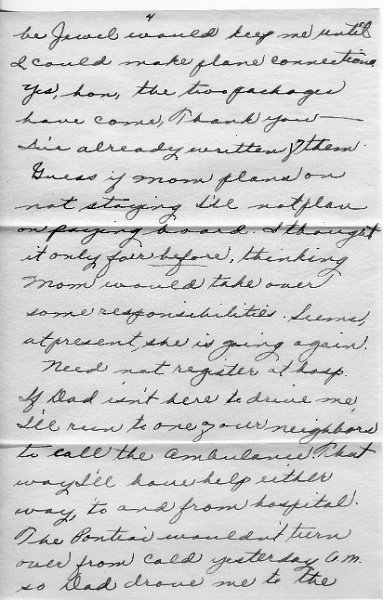 4
be Jewel would keep me until
I could make plane connections.
Yes, hon, the two packages
have come, Thank you —
I've already written of them.
Guess if Mom plans on
not staying I'll not plan
on paying board. I thought
it only fair before, thinking
Mom would take over
some responsibilities. Seems,
at present, she is going again.
Need not register at hosp.
If Dad isn't here to drive me,
I'll run to one of our neighbors
to call the ambulance. That
way I'll have help either
way, to and from hospital.
The Pontiac wouldn't turn
over from cold yesterday a.m.
so Dad drove me to the